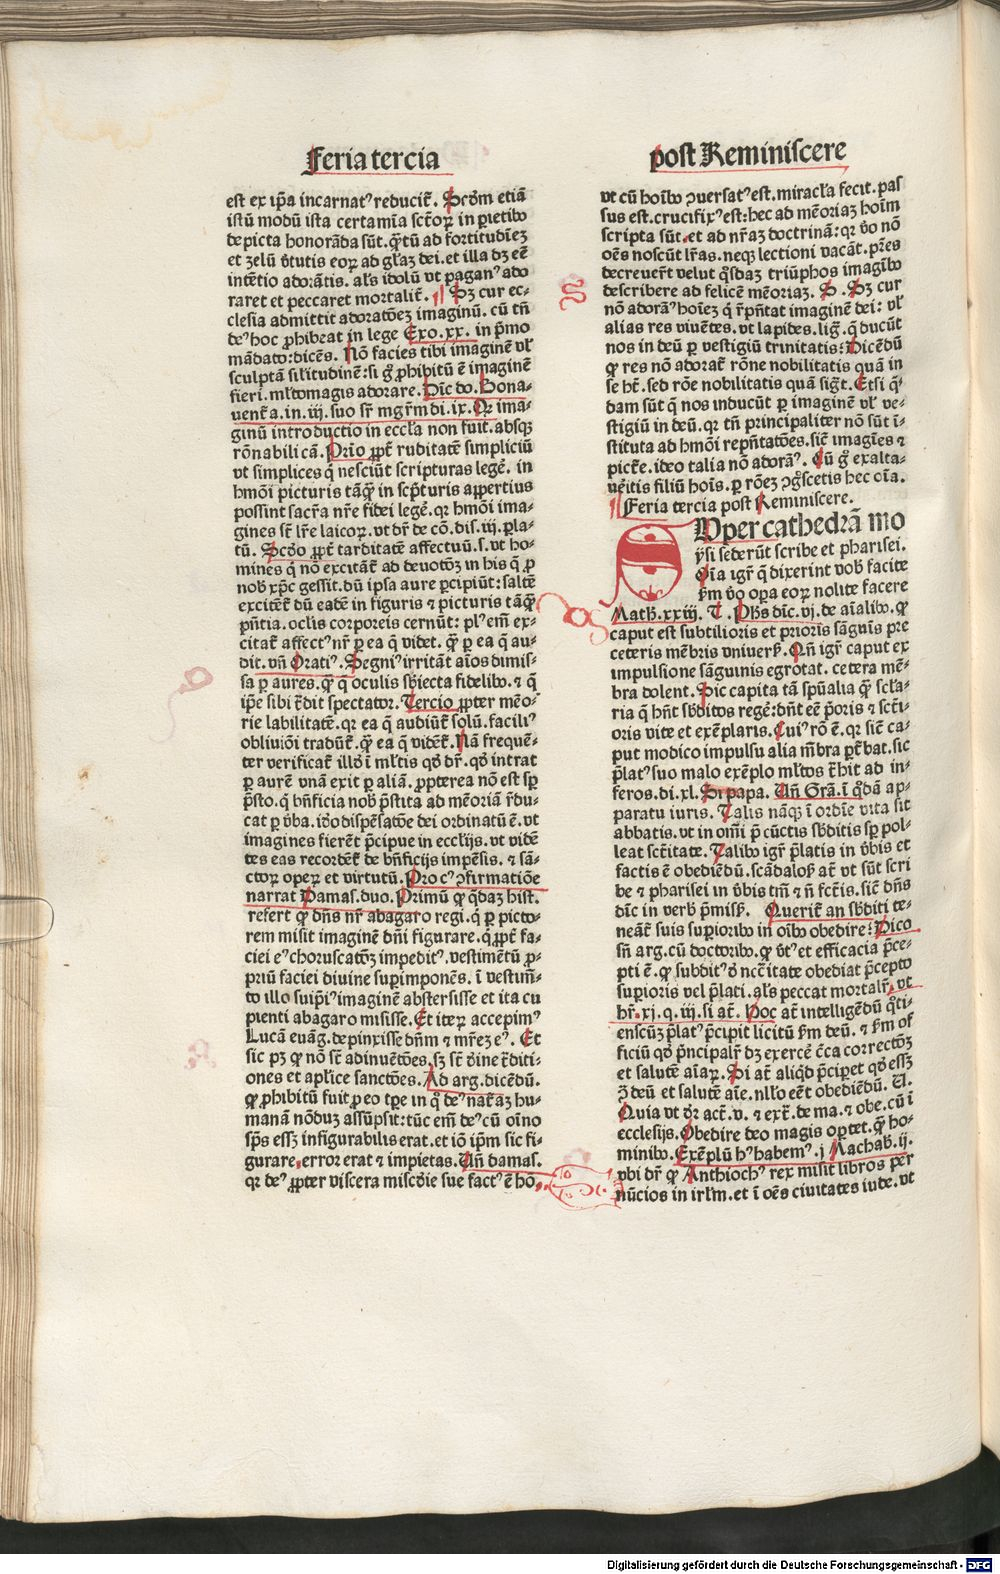 Feria tercia
est ex ip̄a incarnatꝰ reducit̄. Scd̄m etiā
istū modū ista certamīa sctōꝝ in parietibꝰ
depicta honorāda sūt. q̄tū ad fortitudīeʒ
et zelū v̄tutis eoꝝ ad gl̄iaʒ dei. et illa dʒ eē
intētio adorātis. al̄s idolū vt paganꝰ ado
raret et peccaret mortalit̄. ¶ Sʒ cur ec⸗
clesia admittit adoratōeʒ imaginū. cū tn̄
deꝰ hoc ꝓhibeat in lege Exo. xx. in p̄mo
mādato: dicēs. Nō facies tibi imaginē vl̓
sculptā sil̓itudinē: si g̊ ꝓhibitū ē imaginē
fieri. ml̓tomagis adorare. Dīc do. Bona⸗
uent̄a. in. iij. suo sr̄ mgr̄m di. ix. Qꝛ ima⸗
ginū introductio in eccl̓ia non fuit. absqꝫ
rōnabili cā. Prīo ꝓpt̄ ruditatē simpliciū
vt simplices q̄ nesciūt scripturas legē. in
hmōi picturis tāq̄ in sc̄pturis apertius
possint sacr̄a nr̄e fidei legē. qꝛ hmōi ima⸗
gines st̄ lr̄e laicoꝝ. vt dr̄ de cō. dis. iij. ꝑla⸗
tū. Scd̓o ꝓpt̄ tarditatē affectuū. s. vt ho⸗
mines q̄ nō excitāt̄ ad deuotōʒ in his q̄ ꝓ
nob̓ xp̄c gessit. dū ipsa aure ꝑcipiūt: saltē
excitēt̄ dū eadē in figuris ⁊ picturis tāq̄
p̄ntia. ocl̓is corporeis cernūt: plꝰ em̄ ex⸗
citat̄ affectꝰ nr̄ ꝑ ea q̄ videt. q̄ ꝑ ea q̄ au⸗
dit. vn̄ Oratiꝰ. Segniꝰ irritāt aīos dimis⸗
sa ꝑ aures. q̄ q̄ oculis sb̓iecta fidelibꝰ. ⁊ q̄
ip̄e sibi t̄dit spectator. Tercio ꝓpter mēo⸗
rie labilitatē. qꝛ ea q̄ audiūt̄ solū. faciliꝰ
obliuiōi tradūt̄. q̄ ea q̄ vidēt̄. Nā frequē⸗
ter verificat̄ illd̓ ī ml̓tis qd̓ dr̄. qd̓ intrat
ꝑ aurē vnā exit ꝑ aliā. ꝓpterea nō est sꝑ
p̄sto. q̄ bn̄ficia nob̓ p̄stita ad memoriā r̄du⸗
cat ꝑ v̄ba. id̓o dispēsatōe dei ordinatū ē. vt
imagines fierēt p̄cipue in eccl̓ijs. vt vidē
tes eas recordēt̄ de bn̄ficijs impēsis. ⁊ sā⸗
ctoꝝ opeꝝ et virtutū. Pro cꝰ ꝯfirmatiōe
narrat Damas. duo. Primū qꝫ q̄daʒ hist.
refert qꝫ dn̄s nr̄ abagaro regi. q̄ ꝑ picto⸗
rem misit imaginē dn̄i figurare. q̄ ꝓpt̄ fa⸗
ciei eꝰ choruscatōʒ impeditꝰ. vestimētū ꝓ⸗
priū faciei diuine suꝑimponēs. ī vestim̄⸗
to illo suip̄iꝰ imaginē abstersisse et ita cu
pienti abagaro misisse. Et iteꝝ accepimꝰ
Lucā euāg. depinxisse dn̄m ⁊ mr̄eʒ eꝰ. Et
sic pʒ qꝫ nō st̄ adinuētōes. sʒ st̄ d̓ine t̄diti⸗
ones et apl̓ice sanctōes. Ad arg. dicēdū.
qꝫ ꝓhibitū fuit ꝓ eo tꝑe in q̄ deꝰ nat̄aʒ hu⸗
manā nōduʒ assūpsit: tūc em̄ deꝰ cū oīno
sp̄s essʒ infigurabilis erat. et iō ip̄m sic fi⸗
gurare, error erat ⁊ impietas. Vn̄ damas.
qꝛ deꝰ ꝓpter viscera misc̄die sue factꝰ ē hō,
post Reminiscere
vt cū hoībꝰ ꝯuersatꝰ est. miracl̓a fecit. pas
sus est. crucifixꝰ est: hec ad mēoriaʒ hoīm
scripta sūt. et ad nr̄aʒ doctrinā: qꝛ v̓o nō
oēs noscūt lr̄as. neqꝫ lectioni vacāt. pr̄es
decreuert̄ velut q̄sdaʒ triūphos imagībꝰ
describere ad felicē mēoriaʒ. S. Sʒ cur
nō adorāꝰ hoīeʒ q̄ rep̄ntat imaginē dei: vl̓
alias res viuētes. vt lapides. liḡ. q̄ ducūt
nos in deū ꝑ vestigiū trinitatis: Dicēdū
qꝫ res nō adorat̄ rōne nobilitatis quā in
se ht̄. sed rōe nobilitatis quā sig̓t. Etsi q̓⸗
dam sūt q̄ nos inducūt ꝑ imaginē vl̓ ve⸗
stigiū in deū. qꝛ tn̄ principaliter nō sūt ī⸗
stituta ad hmōi rep̄ntatōes. sic̄ imagīes ⁊
pict̄e. ideo talia nō adorāꝰ. Cū g̊ exalta⸗
ueritis filiū hoīs. ꝑ rōeʒ ꝯg̓scetis hec oīa.
¶ Feria tercia post Reminiscere.
SVper cathedrā mo
ysi sederūt scribe et pharisei.
Oīa igr̄ q̄ dixerint vob̓ facite
sm̄ v̓o oꝑa eoꝝ nolite facere
Math̓. xxiij. T. Ph̓s dīc. vj. de aīalibꝰ. qꝫ
caput est subtilioris et prioris sāguīs pre
ceteris mēbris vniuers̓. Qn̄ igr̄ caput ex
impulsione sāguinis egrotat. cetera mē⸗
bra dolent. Sic capita tā sp̄ualia q̄ scl̓a⸗
ria q̄ hn̄t sb̓ditos regē: dn̄t eē p̄oris ⁊ sct̄i⸗
oris vite et exēplaris. Cuiꝰ rō ē. qꝛ sic̄ ca⸗
put modico impulsu alia mēbra ꝑt̄bat. sic
p̄latꝰ suo malo exēplo ml̓tos t̄hit ad in⸗
feros. di. xl. Si papa. Vn̄ Gra. ī q̓dā ap⸗
paratu iuris. Talis nāqꝫ ī ordīe vita sit
abbatis. vt in om̄i p̄ cūctis sb̓ditis sꝑ pol⸗
leat sct̄itate. Talibꝰ igr̄ p̄latis in v̄bis et
factis ē obediēdū. scādalos̓ at̄ vt sūt scri
be ⁊ pharisei in v̄bis tm̄ ⁊ n̄ fct̄is. sic̄ dn̄s
dīc in verb̓ p̄miss̓. Querit̄ an sb̓diti te⸗
neāt̄ suis suꝑioribꝰ in oībꝰ obedire: Dico
sn̄ arg. cū doctoribꝰ. qꝫ v̓tꝰ et efficacia p̄ce⸗
pti ē. qꝫ subditꝰ d̓ nccītate obediat p̄cepto
suꝑioris vel p̄lati. al̓s peccat mortalr̄. vt
hr̄. xj. q. iij. si at̄. Hoc at̄ intelligēdū q̓ti⸗
enscūʒ p̄latꝰ p̄cipit licitū sm̄ deū. ⁊ sm̄ of
ficiū qd̓ p̄ncipalr̄ dʒ exercē c̄ca correctōʒ
et salutē aīaꝝ. Si at̄ aliqd̓ p̄ciperet qd̓ essʒ
ꝯ̄ deū et salutē aīe. nll̓o eēt obediēdū. V.
Quia vt dr̄ act̄. v. ⁊ ext̄. de ma. ⁊ obe. cū ī
ecclesijs. Obedire deo magis oꝑtet. q̄ ho⸗
minibꝰ. Exēplū hꝰ habemꝰ. j Machab̓. ij.
vbi dr̄ qꝫ Anthiochꝰ rex misit libros per
nūcios in irl̓m. et ī oēs ciuitates iude. vt
Digitalisierung gefördert durch die Deutsche Forschungsgemeinschaft - DFG